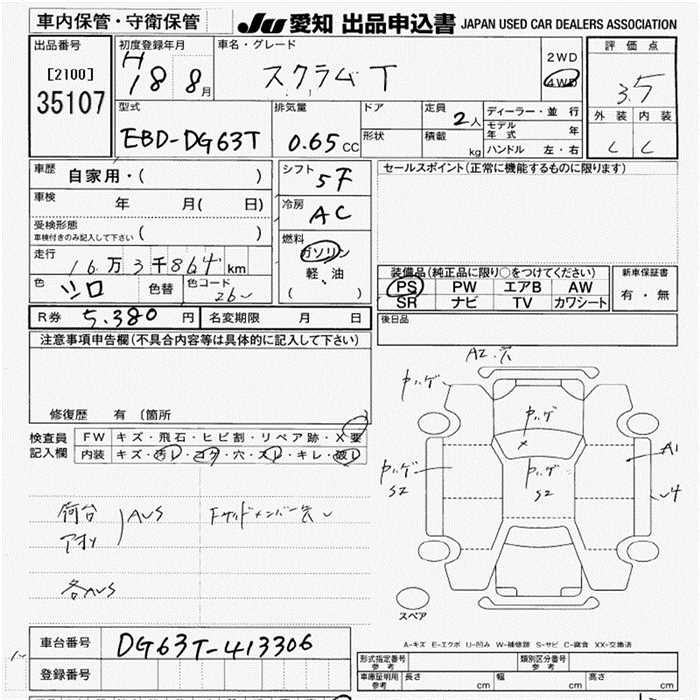 車内保管・守衛保管
JU 愛知 出品申込書 JAPAN USED CAR DEALERS ASSOCIATION
出品番号
[2100]
35107
初度登録年月
H 18 8月
車名・グレード
スクラム T
2WD
4WD
評価点
3.5
外装 内装
C C
型式
EBD-DG63T
排気量
0.65 CC
ドア
形状
定員
2人
積載
kg
ディーラー・並行
モデル年式 年
ハンドル 左・右
車歴
自家用・( )
車検
年 月( 日)
受検形態
車検付きのみ記入して下さい ( )
走行
16万3千864 km
色
シロ
色替
色コード
26
シフト
5F
冷房
AC
燃料
ガソリン
軽油
( )
セールスポイント(正常に機能するものに限ります)
装備品(純正品に限り○をつけてください)
PS PW エアB AW
SR ナビ TV カワシート
新車保証書
有・無
R券 5.380 円
名変期限 月 日
後日品
注意事項申告欄(不具合内容等は具体的に記入して下さい)
修復歴 有 (箇所 )
検査員記入欄
FW キズ・飛石・ヒビ割・リペア跡・X要
内装 キズ・汚レ・コゲ・穴・スレ・キレ・破レ
荷台
アオリ
AUS
各AUS
A2.穴
ヤハゲ
ヤハゲ
ヤハゲ S2
ヤハゲ S2
A1
U4
スペア
A-キズ E-エクボ U-凹み W-補修跡 S-サビ C-腐食 XX-交換済
車台番号
DG63T-413306
登録番号
形式指定番号 参考
類別区分番号 参考
車庫証明用 参考
長さ cm
幅 cm
高さ cm